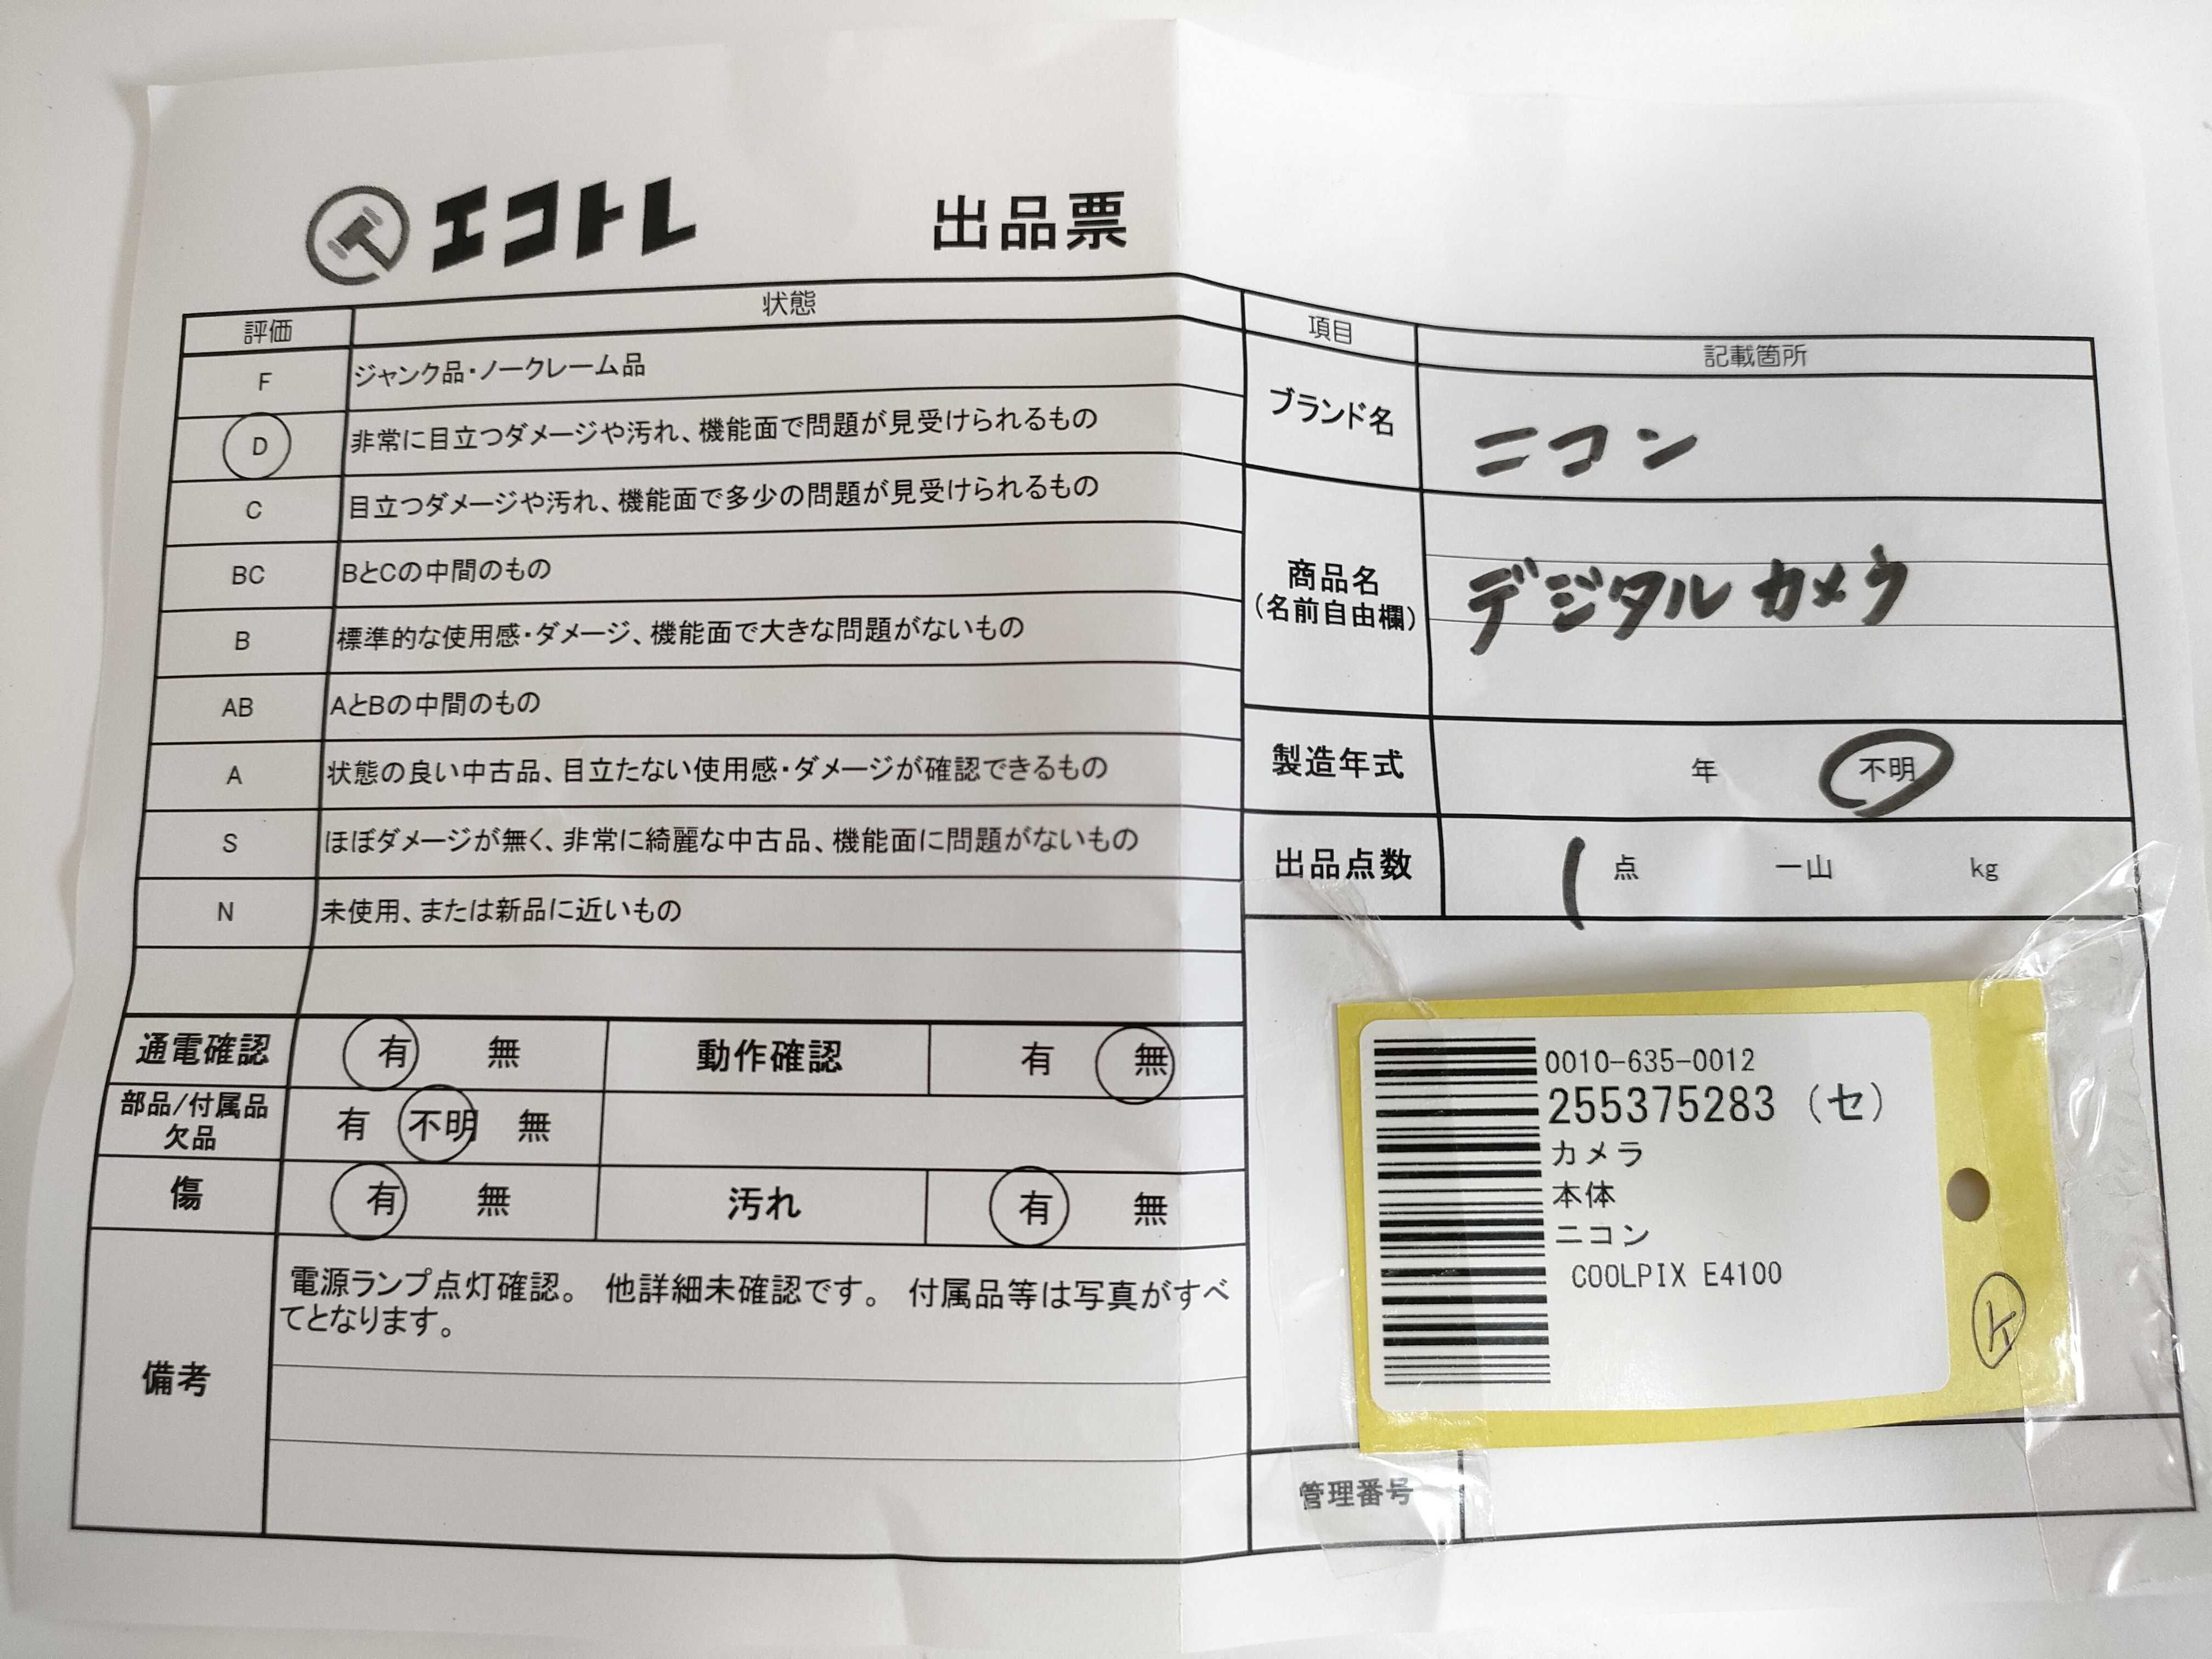 エコトレ 出品票
評価 状態
F ジャンク品・ノークレーム品
D 非常に目立つダメージや汚れ、機能面で問題が見受けられるもの
C 目立つダメージや汚れ、機能面で多少の問題が見受けられるもの
BC BとCの中間のもの
B 標準的な使用感・ダメージ、機能面で大きな問題がないもの
AB AとBの中間のもの
A 状態の良い中古品、目立たない使用感・ダメージが確認できるもの
S ほぼダメージが無く、非常に綺麗な中古品、機能面に問題がないもの
N 未使用、または新品に近いもの
通電確認 有 無 動作確認 有 無
部品/付属品
欠品 有 不明 無
傷 有 無 汚れ 有 無
備考
電源ランプ点灯確認。 他詳細未確認です。 付属品等は写真がすべ
てとなります。
項目 記載箇所
ブランド名 ニコン
商品名
(名前自由欄) デジタルカメラ
製造年式 年 不明
出品点数 1 点 一山 kg
0010-635-0012
255375283 (セ)
カメラ
本体
ニコン
COOLPIX E4100
K
管理番号